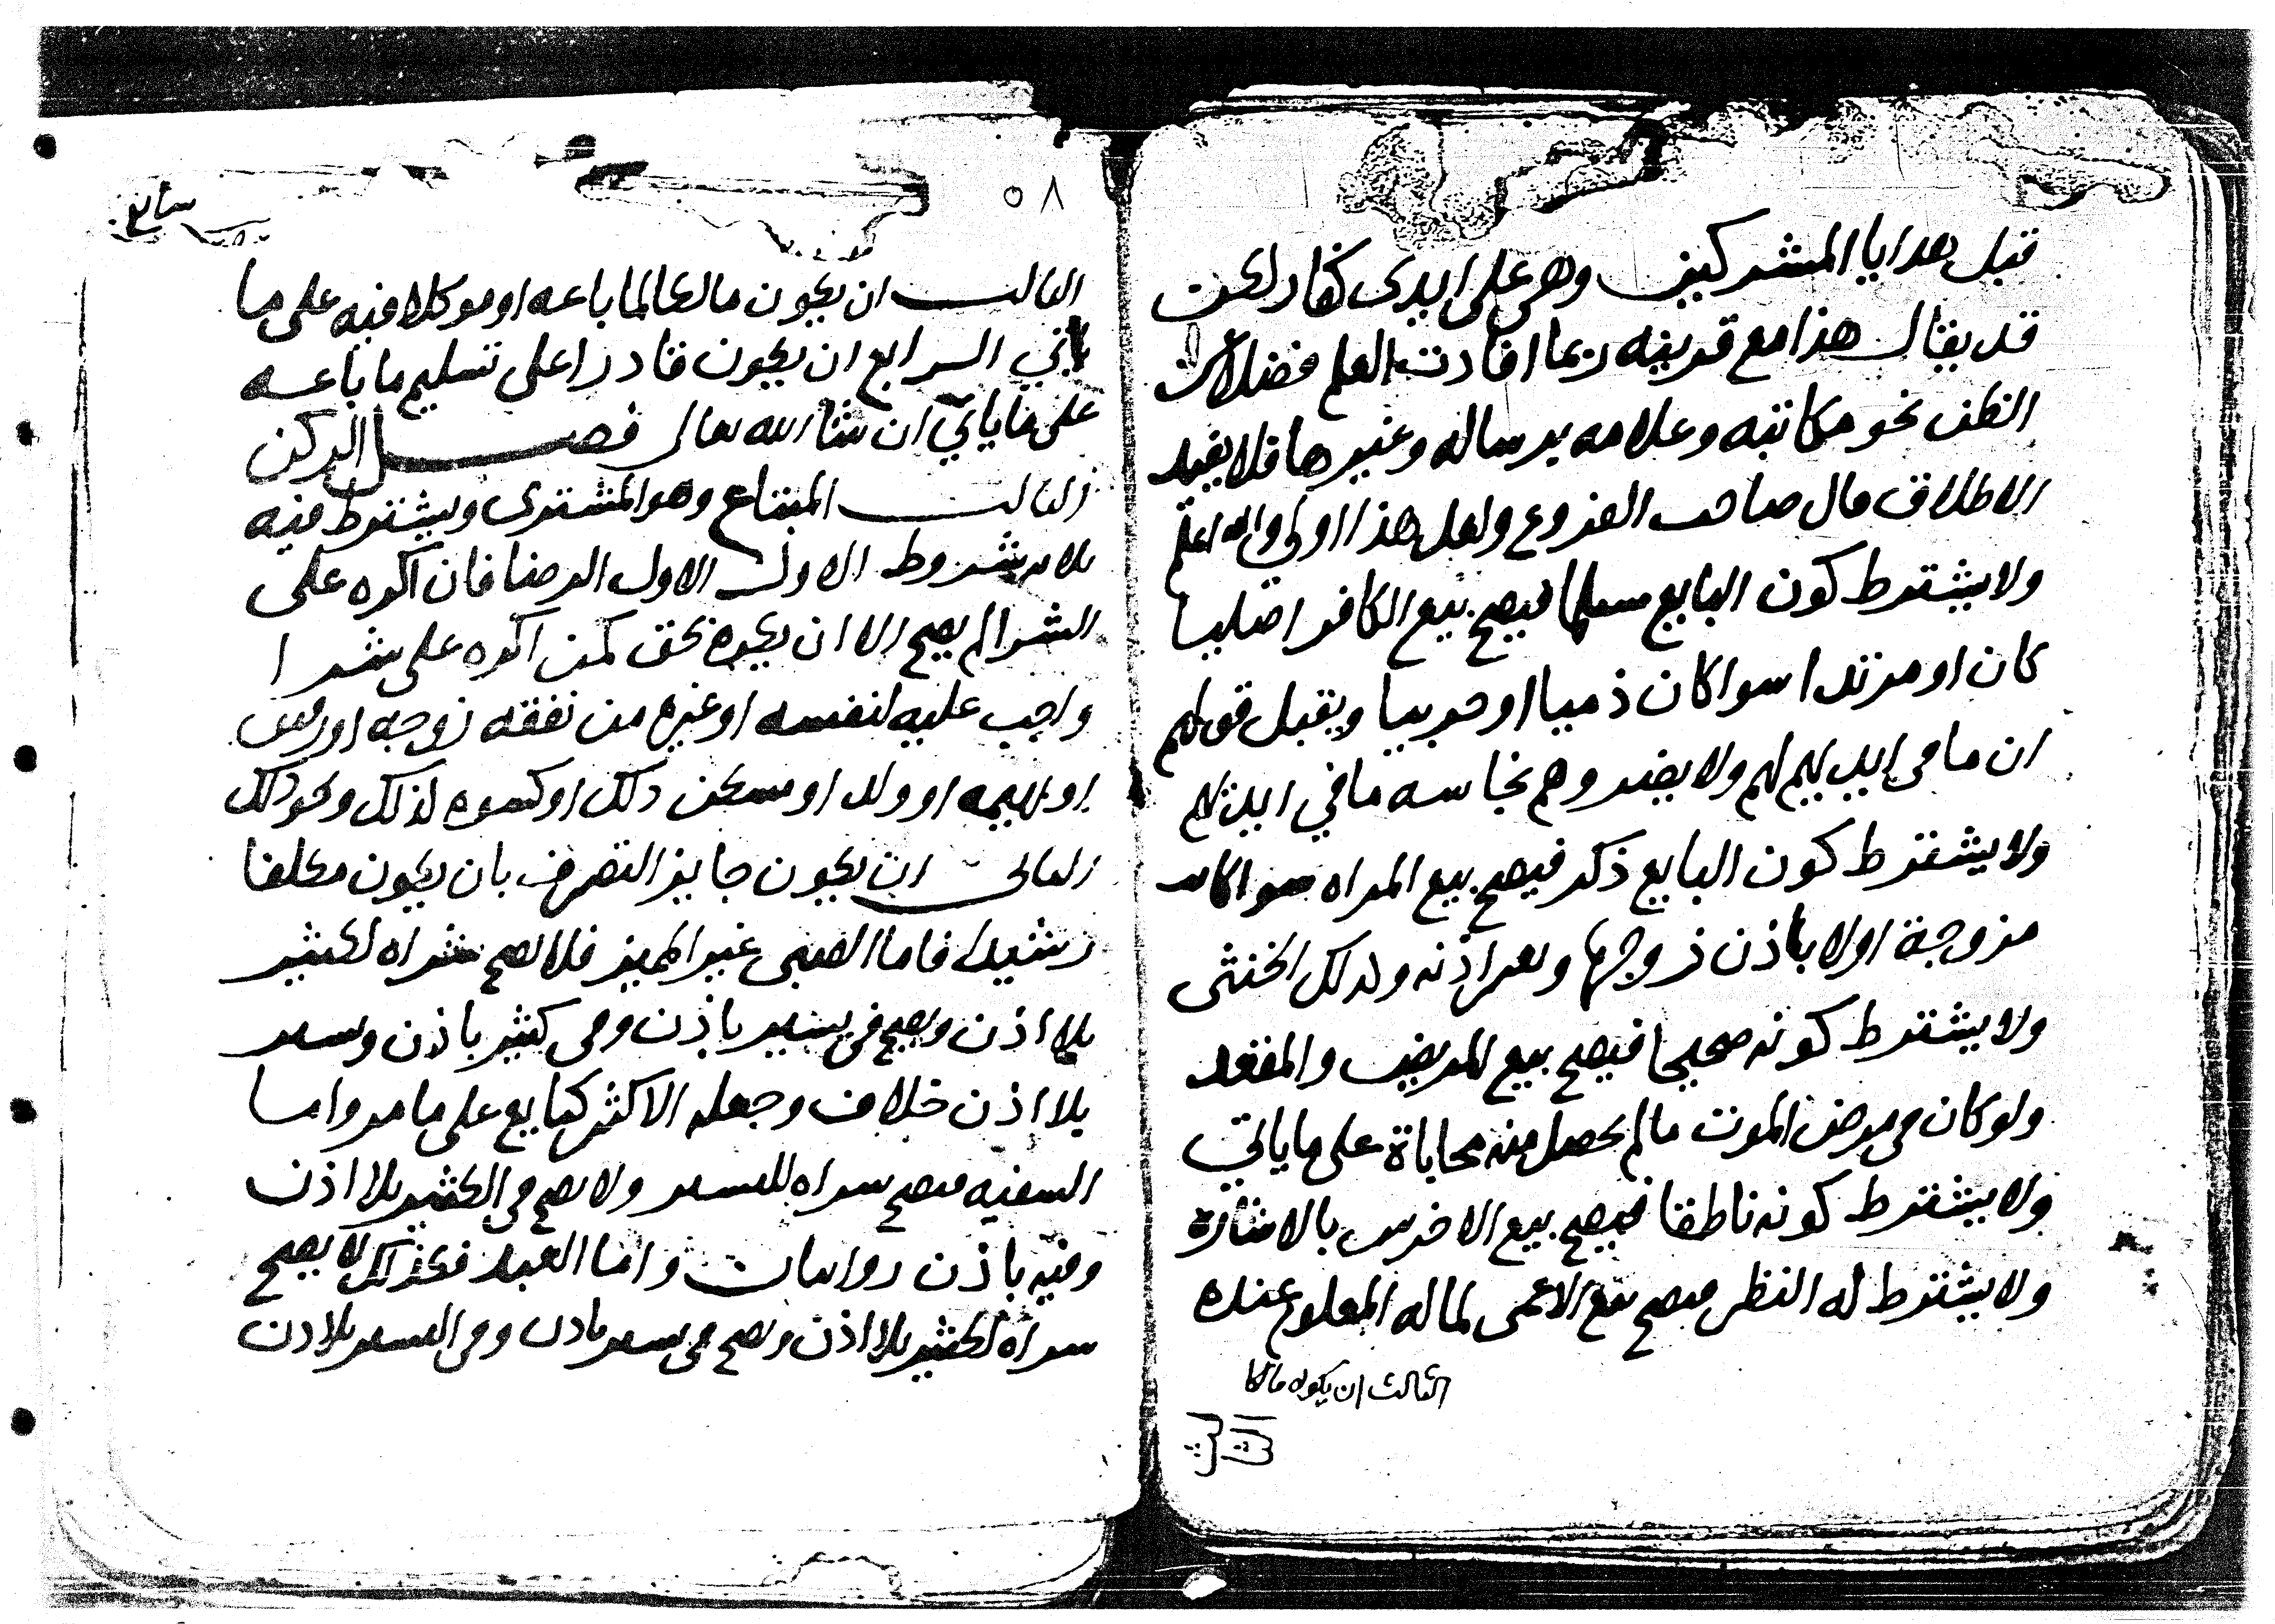 قبل هدايا المشركين وهي على ايدي كفار لكن
قد يقال هذا مع قرينه ربما افادت العلم فضلا عن
الظن نحو مكاتبه وعلامه برساله وغيرها فلا يفيد
الاطلاق قال صاحب الفروع ولعل هذا اولى والله اعلم
ولا يشترط كون البايع مسلما فيصح بيع الكافر اصليا
كان او مرتدا سوا كان ذميا او حربيا ويقبل قولهم
ان ما في ايديهم لهم ولا يضر وهم نجاسه ما في ايديهم
ولا يشترط كون البايع ذكر فيصح بيع المراه سوا كانت
مزوجة اولا باذن زوجها وبغير اذنه وكذلك الخنثى
ولا يشترط كونه صحيحا فيصح بيع المريض والمقعد
ولو كان في مرض الموت ما لم يحصل منه محاباة على ما ياتي
ولا يشترط كونه ناطقا فيصح بيع الاخرس بالاشارة
ولا يشترط له النظر فيصح بيع الاعمى لماله المعلوم عنده
الثالث ان يكون مالكا
٥٨
الثالث ان يكون مالكا لما باعه او موكلا فيه على ما
ياتي الرابع ان يكون قادرا على تسليم ما باعه
على ما ياتي ان شا الله تعالى فصل الركن
الثالث المبتاع وهو المشتري ويشترط فيه
ثلاثه شروط الاول الاول الرضا فان اكره على
الشرا لم يصح الا ان يكون بحق كمن اكره على شرا
واجب عليه لنفسه او غيره من نفقه زوجه او رقيق
او بهيمه او ولد او مسكن ذلك او كسوه لذلك ونحو ذلك
الثاني ان يكون جايز التصرف بان يكون مكلفا
رشيدا فاما الصبي غير المميز فلا يصح شراه لكثير
بلا اذن ويصح في يسير باذن وفي كثير باذن ويسير
بلا اذن خلاف وجعله الاكثر كبايع على ما مر واما
السفيه فيصح شراه لليسير ولا يصح في الكثير بلا اذن
وفيه باذن روايتان واما العبد فكذلك لا يصح
شراه لكثير بلا اذن ويصح في يسير باذن وفي اليسير بلا اذن